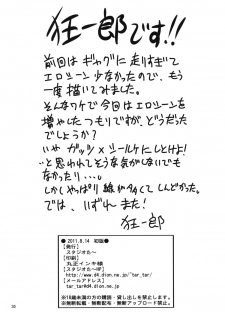 狂一郎です!!
前回はギャグに走りすぎて
エロシーン少なかったので、もう
一度描いてみました。
そんなワケで今回はエロシーンを
増やしたつもりですが、どうだった
でしょうか?
いや ガッツ×シールケにしとけよ!
…と思われてそうな気がしないでも
なかったり…。
しかしやっぱり線が多くてしんどかった。
では、いずれまた!
狂一郎
●2011.8.14 初版●
【発行】
スタジオた～
【印刷】
丸正インキ様
【スタジオた～HP】
http://www.d4.dion.ne.jp/~tar_tar/
【メールアドレス】
tar_tar@d4.dion.ne.jp
※18歳未満の方の購読・貸し出しを禁止します。
※無断転載・無断配布・無断アップロード禁止です。